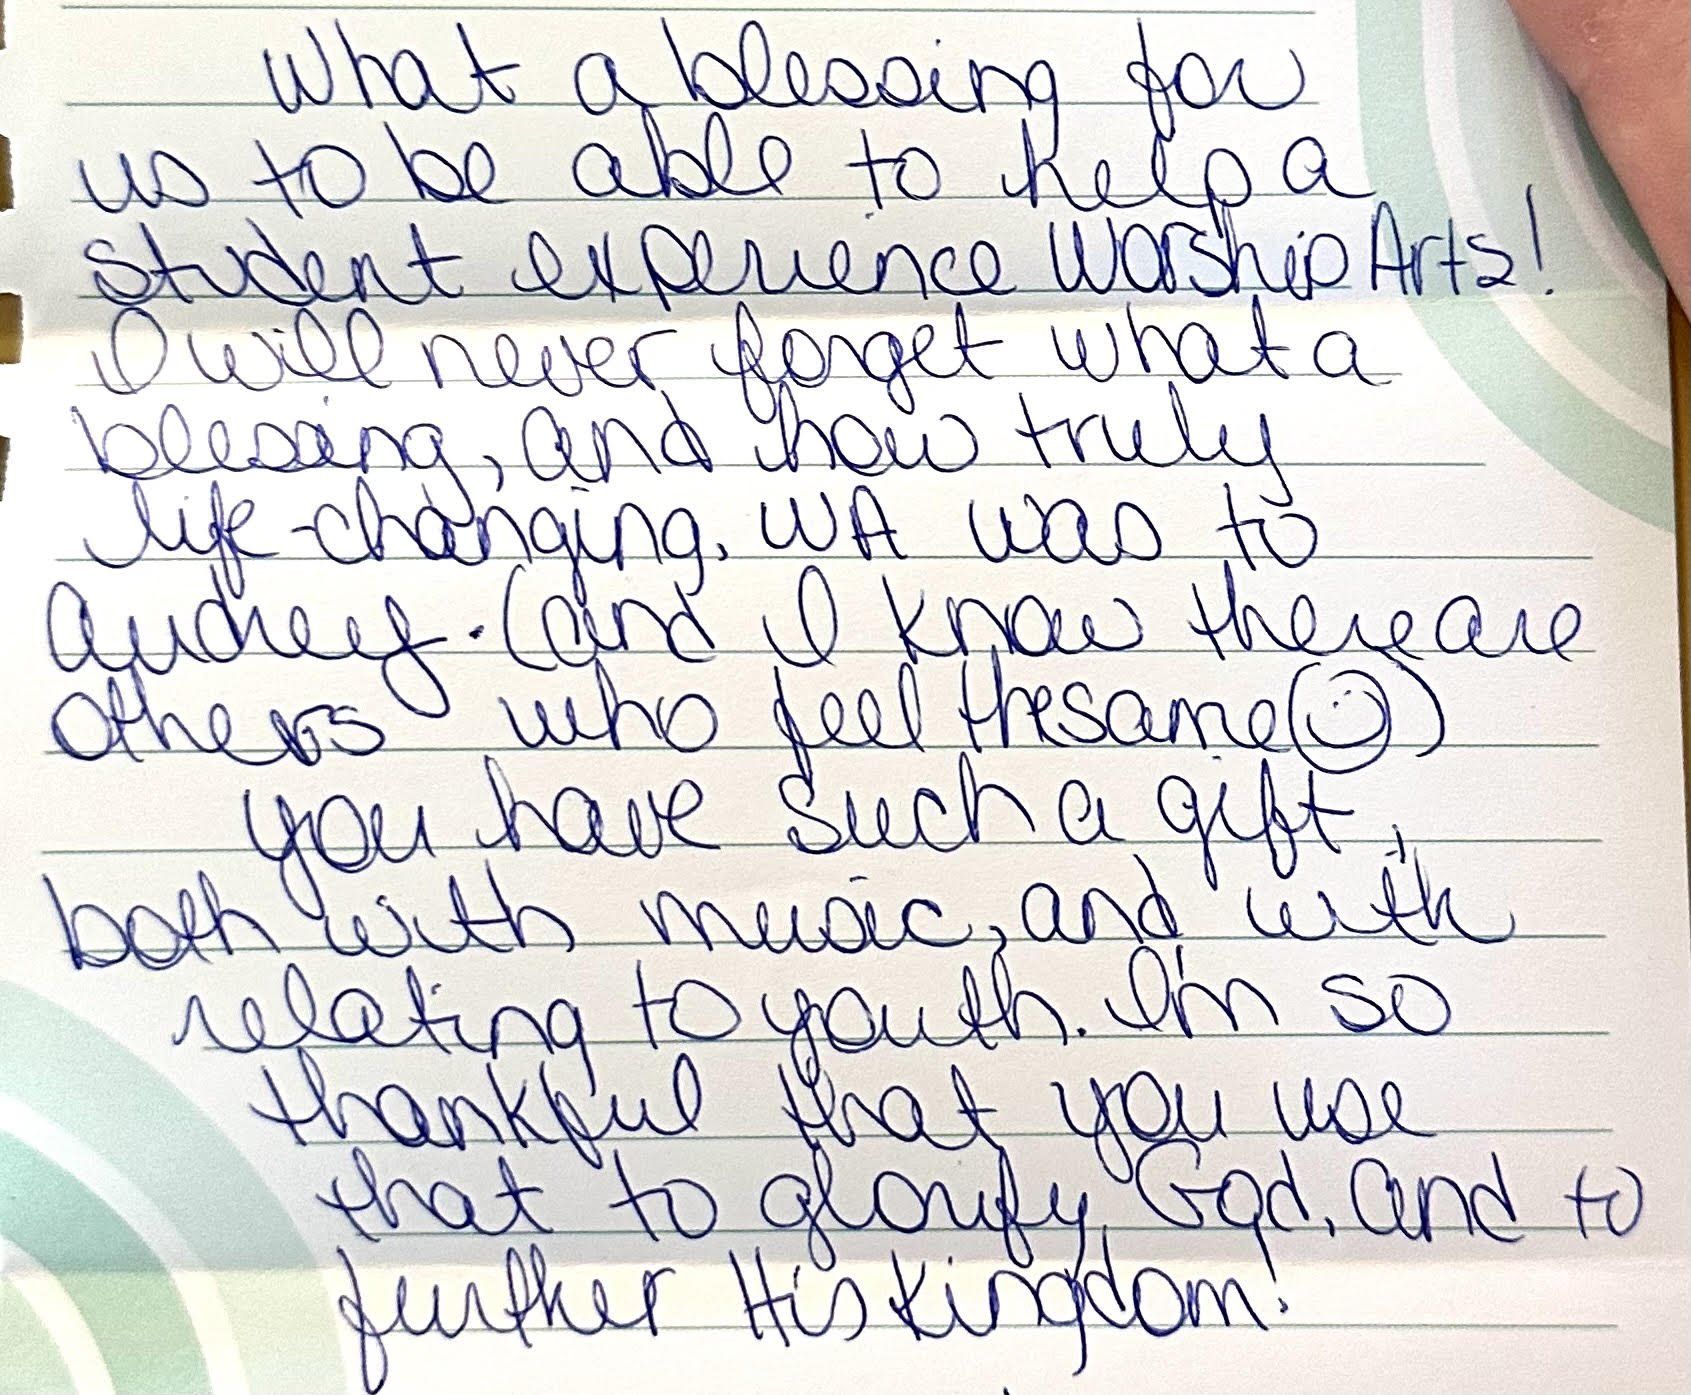 What a blessing for
us to be able to help a
student experience Worship Arts!
I will never forget what a
blessing, and how truly
life-changing, WA was to
Audrey. (and I know there are
others who feel the same ☺)
You have such a gift,
both with music, and with
relating to youth. I'm so
thankful that you use
that to glorify God, and to
further His Kingdom!